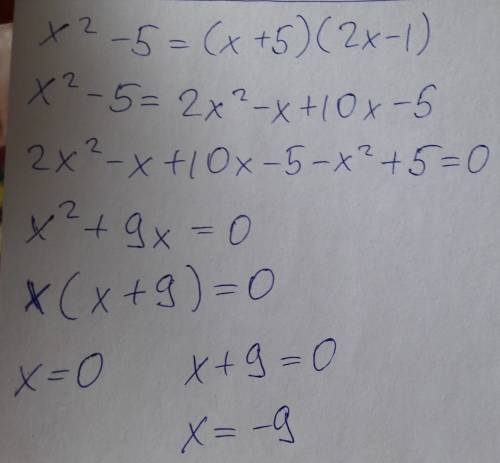 x² - 5 = (x + 5)(2x - 1)
x² - 5 = 2x² - x + 10x - 5
2x² - x + 10x - 5 - x² + 5 = 0
x² + 9x = 0
x(x + 9) = 0
x = 0 x + 9 = 0
x = -9